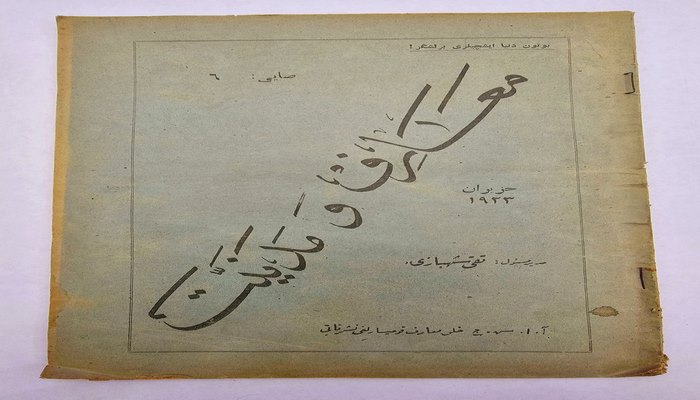 بوتون دنیا ایشچیلری برلشگز!
صایی: ٦
معارف و مدنیت
حزیران
١٩٢٣
تقی شهبازی.
آ. ا. س. ج خلق معارف قومیسارلغی نشریاتی